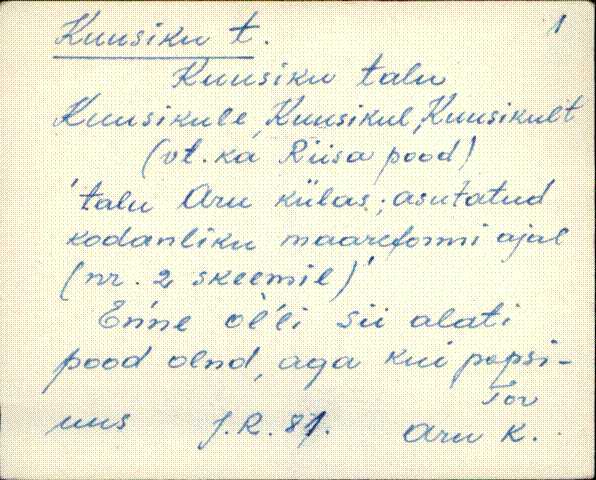 1
Kuusiku t.
Kuusiku talu
Kuusikule, Kuusikul, Kuusikult
(vt. ka Riisa pood)
'talu Aru külas; asutatud
kodanliku maareformi ajal
(nr. 2 skeemil)'
En'ne ol'li sii alati
pood olnd, aga kui popsi-
uus J.R. 81. Tor
Aru k.